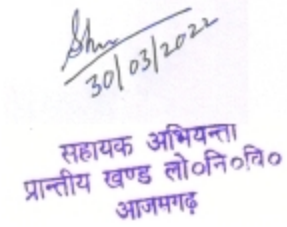 30/03/2022
सहायक अभियन्ता
प्रान्तीय खण्ड लो०नि०वि०
आजमगढ़